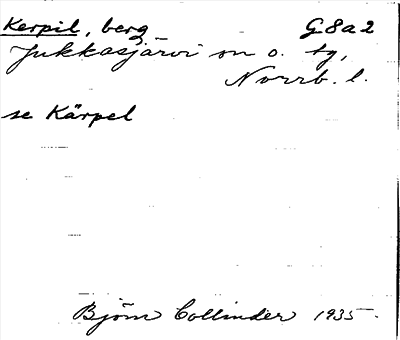 Kerpil, berg G8a2
Jukkasjärvi sn o. tg,
Norrb. l.
se Kärpel
Björn Collinder 1935